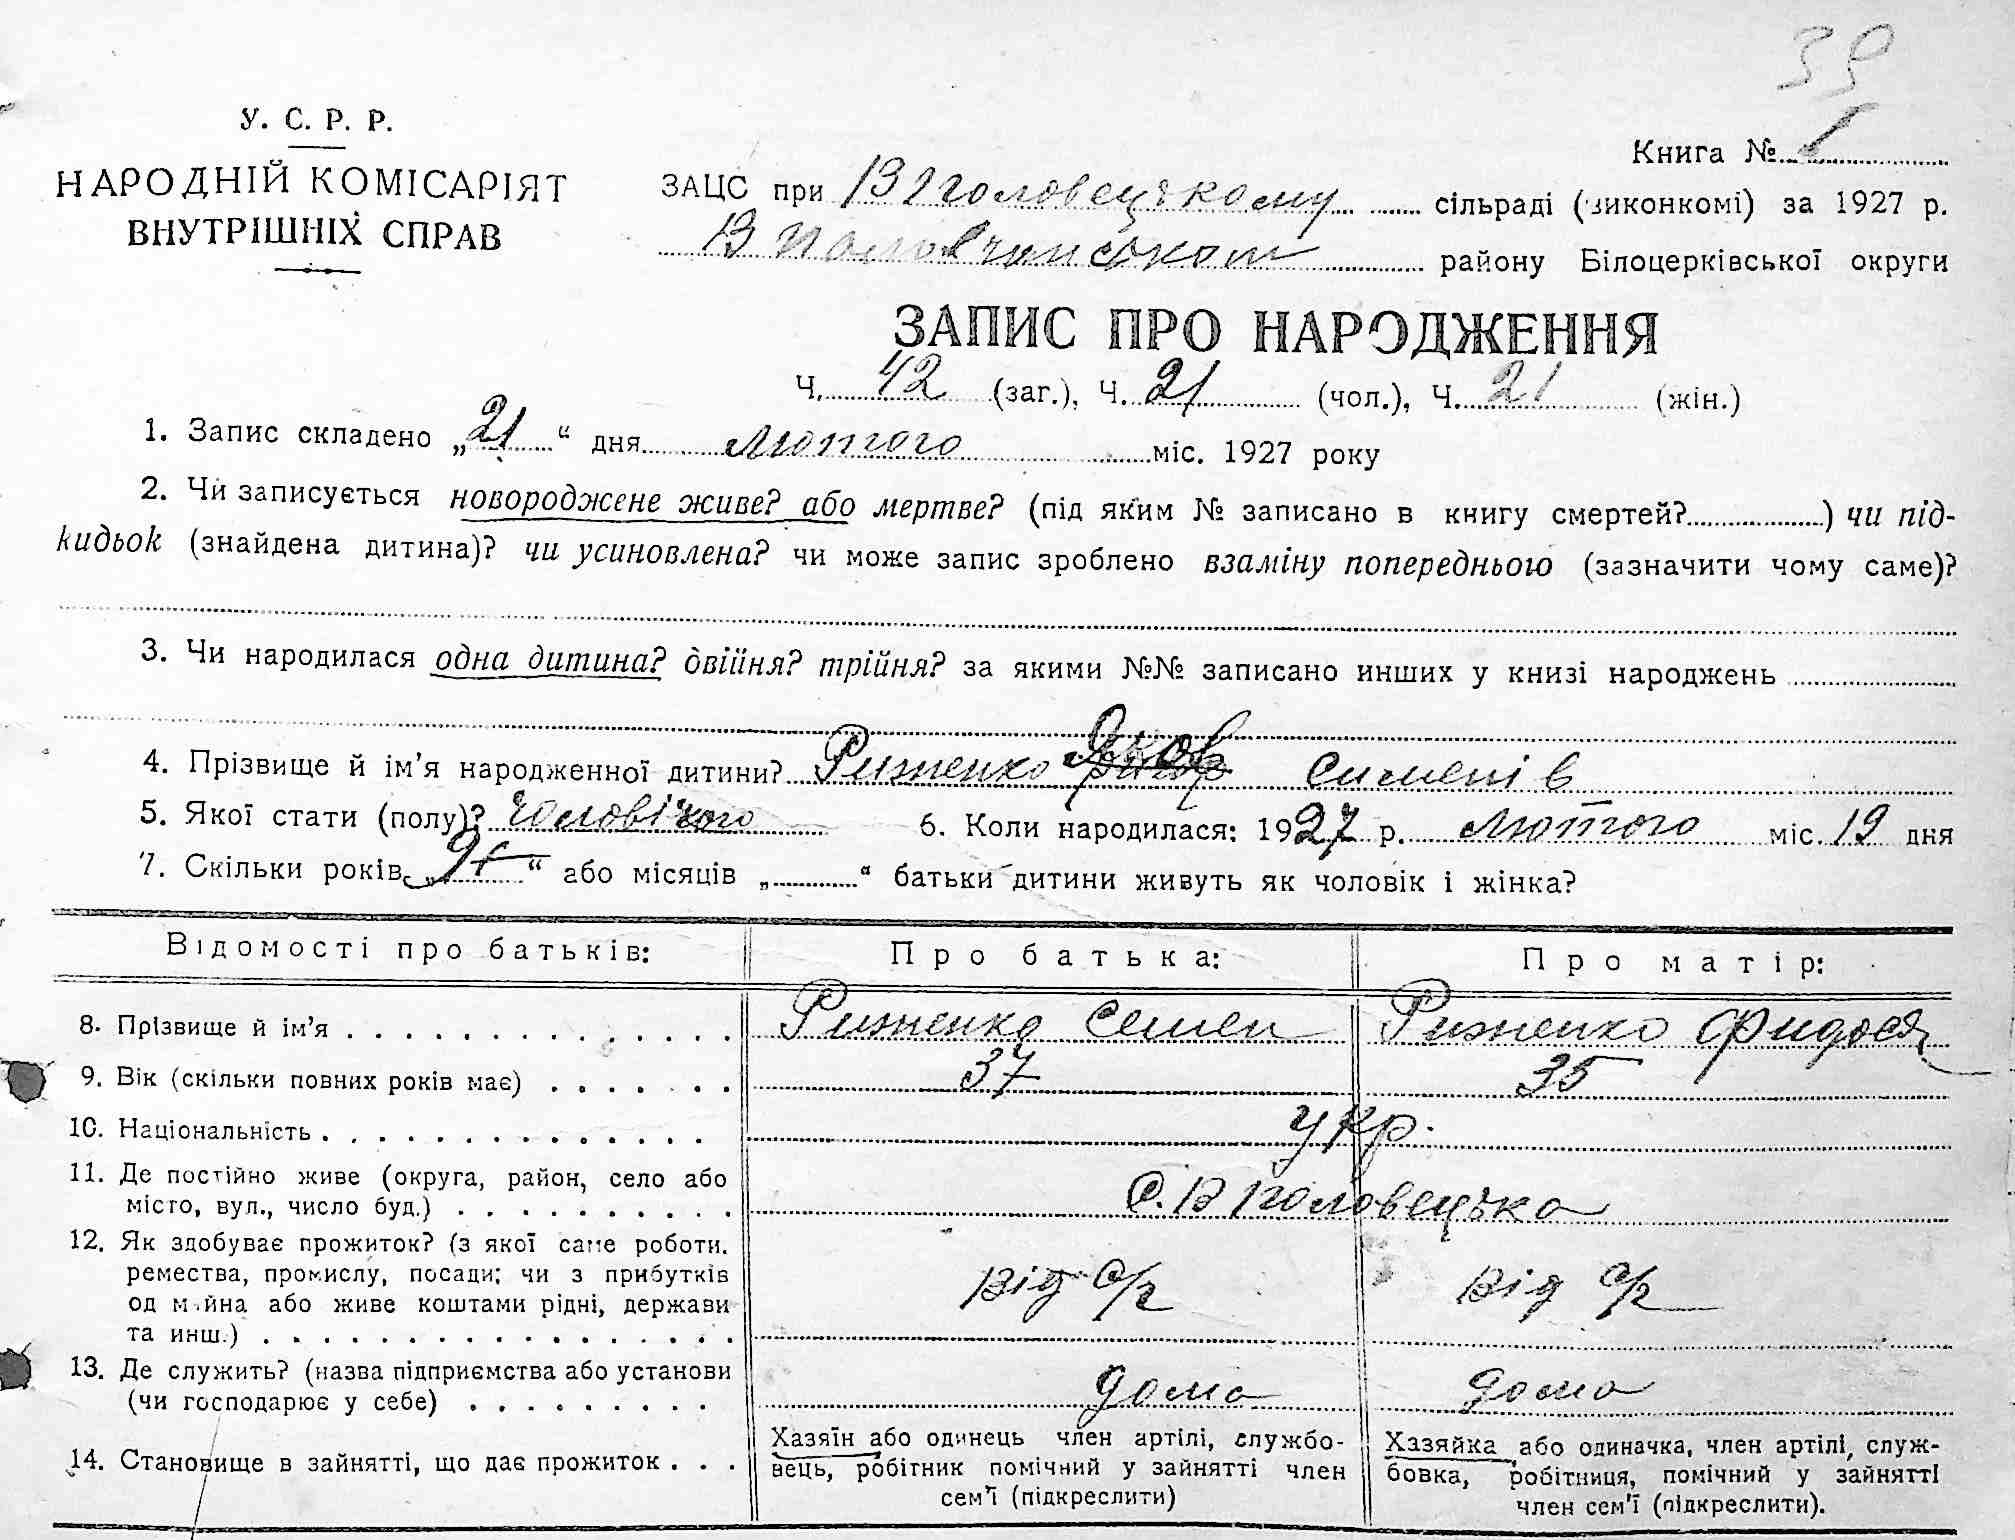 39
У. С. Р. Р.
НАРОДНІЙ КОМІСАРІЯТ
ВНУТРІШНІХ СПРАВ
Книга № 1
ЗАЦС при В Половецькому сільраді (виконкомі) за 1927 р.
В Половчанськом району Білоцерківської округи
ЗАПИС ПРО НАРОДЖЕННЯ
Ч. 42 (заг.), Ч. 21 (чол.), Ч. 21 (жін.)
1. Запис складено „21“ дня лютого міс. 1927 року
2. Чи записується новороджене живе? або мертве? (під яким № записано в книгу смертей? ) чи під-
кидьок (знайдена дитина)? чи усиновлена? чи може запис зроблено взаміну попередньою (зазначити чому саме)?
3. Чи народилася одна дитина? двійня? трійня? за якими №№ записано инших у книзі народжень
4. Прізвище й ім'я народженної дитини? Риженко Яков Сименів
5. Якої стати (полу)? Чоловічого 6. Коли народилася: 1927 р. лютого міс. 19 дня
7. Скільки років „ “ або місяців „ “ батьки дитини живуть як чоловік і жінка?
Відомості про батьків: Про батька: Про матір:
8. Прізвище й ім'я Риженко Семен Риженко Фидося
9. Вік (скільки повних років має) 37 35
10. Національність укр.
11. Де постійно живе (округа, район, село або
місто, вул., число буд.) С. В Половецька
12. Як здобуває прожиток? (з якої саме роботи.
ремества, промислу, посади; чи з прибутків
од майна або живе коштами рідні, держави
та инш.) від с/г від с/г
13. Де служить? (назва підприємства або установи
(чи господарює у себе) дома дома
14. Становище в зайнятті, що дає прожиток
Хазяїн або одинець член артілі, службо-
вець, робітник помічний у зайнятті член
сем'ї (підкреслити)
Хазяйка або одиначка, член артілі, служ-
бовка, робітниця, помічний у зайнятті
член сем'ї (підкреслити).